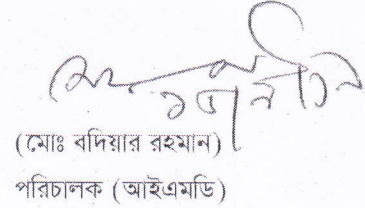 (মোঃ বদিয়ার রহমান)
পরিচালক (আইএমডি)